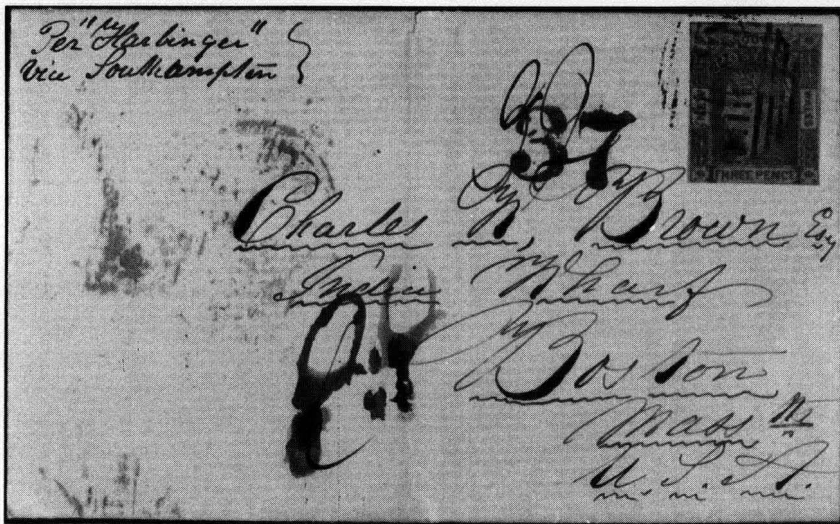 Per "Harbinger"
vice Southampton
37
THREE PENCE
Charles Brown Esq
India Wharf
Boston
Mass
U.S.A.